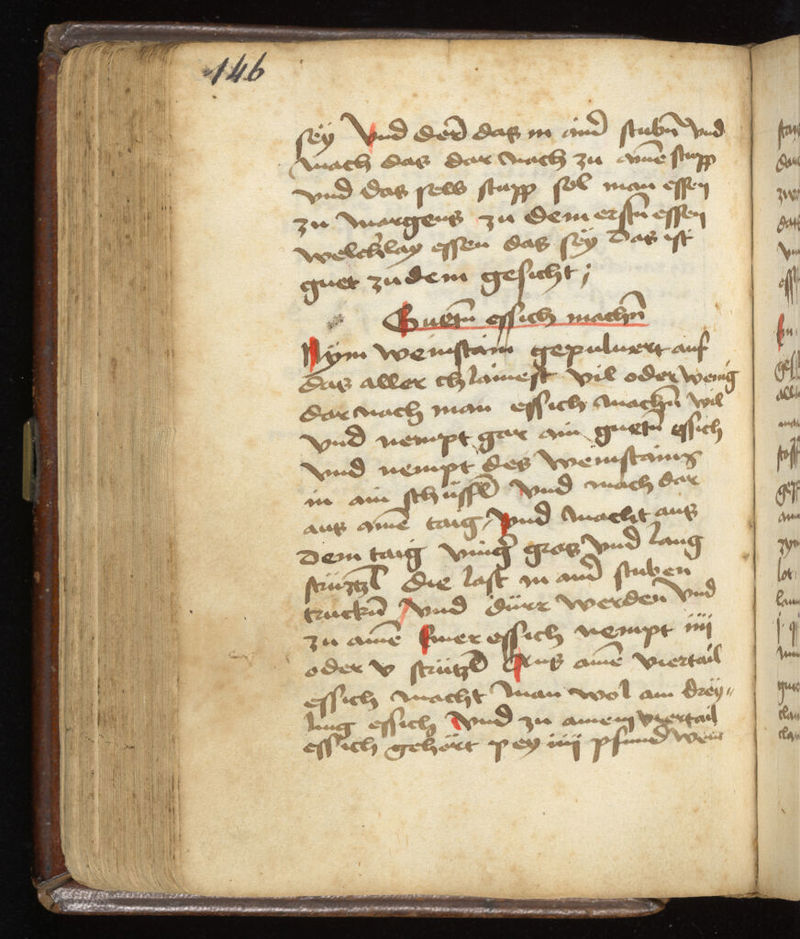 146
sëy Vnd derr das in ainer stubn Vnd
mach das dar nach zu aine stupp
vnd das selb stupp sol man essen
zu margens zu dem erstn essen
welchlay essen das sëy Das ist
guet zu dem gesicht ;
Guetn essich machn
Nym weinstain gepuluert auf
das aller chlainest vil oder wenig
dar nach man essich machn wil
vnd nempt gar ain guetn essich
vnd nempt des weinstains
in ain schüssl vnd mach dar
aus aine taig Vnd macht aus
dem taig vinger gros vnd lang
strützl die last in ainer stuben
truckn Vnd dürr werden Vnd
zu aine Emer essich nempt iiij
oder v strützl Aus aine viertail
essich macht man wol ain dreÿ-
ling essich Vnd zu ainem viertail
essich gehört pey iiij pfund wein